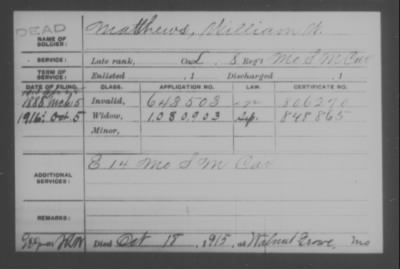 DEAD
NAME OF SOLDIER: Matthews, William H.
SERVICE: Late rank, Co. L. 8 Reg't Mo S M Cav
TERM OF SERVICE: Enlisted , 1 Discharged , 1
DATE OF FILING. CLASS. APPLICATION NO. LAW. CERTIFICATE NO.
1888 Mch 15 Invalid, 643503 806270
1916 Oct. 5 Widow, 1080903 848865
Minor,
ADDITIONAL SERVICES: E 14 Mo S M Cav
REMARKS:
Died Oct 18, 1915, at Walnut Grove, Mo